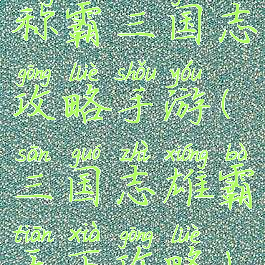 霸三国志
gōng lüè shǒu yóu
攻略手游(
sān guó zhì xióng bà
三国志雄霸
tiān xià gōng lüè
天下攻略)